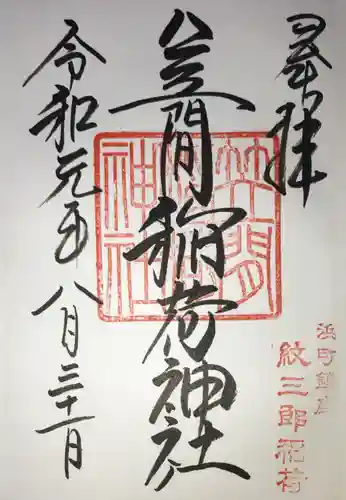 奉拝
笠間稲荷神社
令和元年八月三十一日
笠間稲荷神社
浜町鎮座
紋三郎稲荷